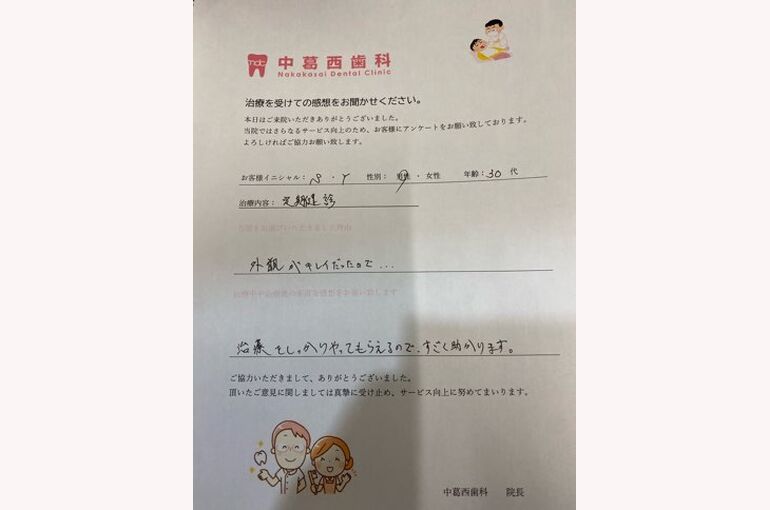 mdc
中葛西歯科
Nakakasai Dental Clinic
治療を受けての感想をお聞かせください。
本日はご来院いただきありがとうございました。
当院ではさらなるサービス向上のため、お客様にアンケートをお願い致しております。
よろしければご協力お願い致します。
お客様イニシャル： S ・ Y 性別： 男性 ・ 女性 年齢： 30 代
治療内容： 定期健診
当院をお選びいただきました理由
外観がキレイだったので...
治療中や治療後の率直な感想をお願い致します
治療もしっかりやってもらえるので、すごく助かります。
ご協力いただきまして、ありがとうございました。
頂いたご意見に関しましては真摯に受け止め、サービス向上に努めてまいります。
中葛西歯科 院長